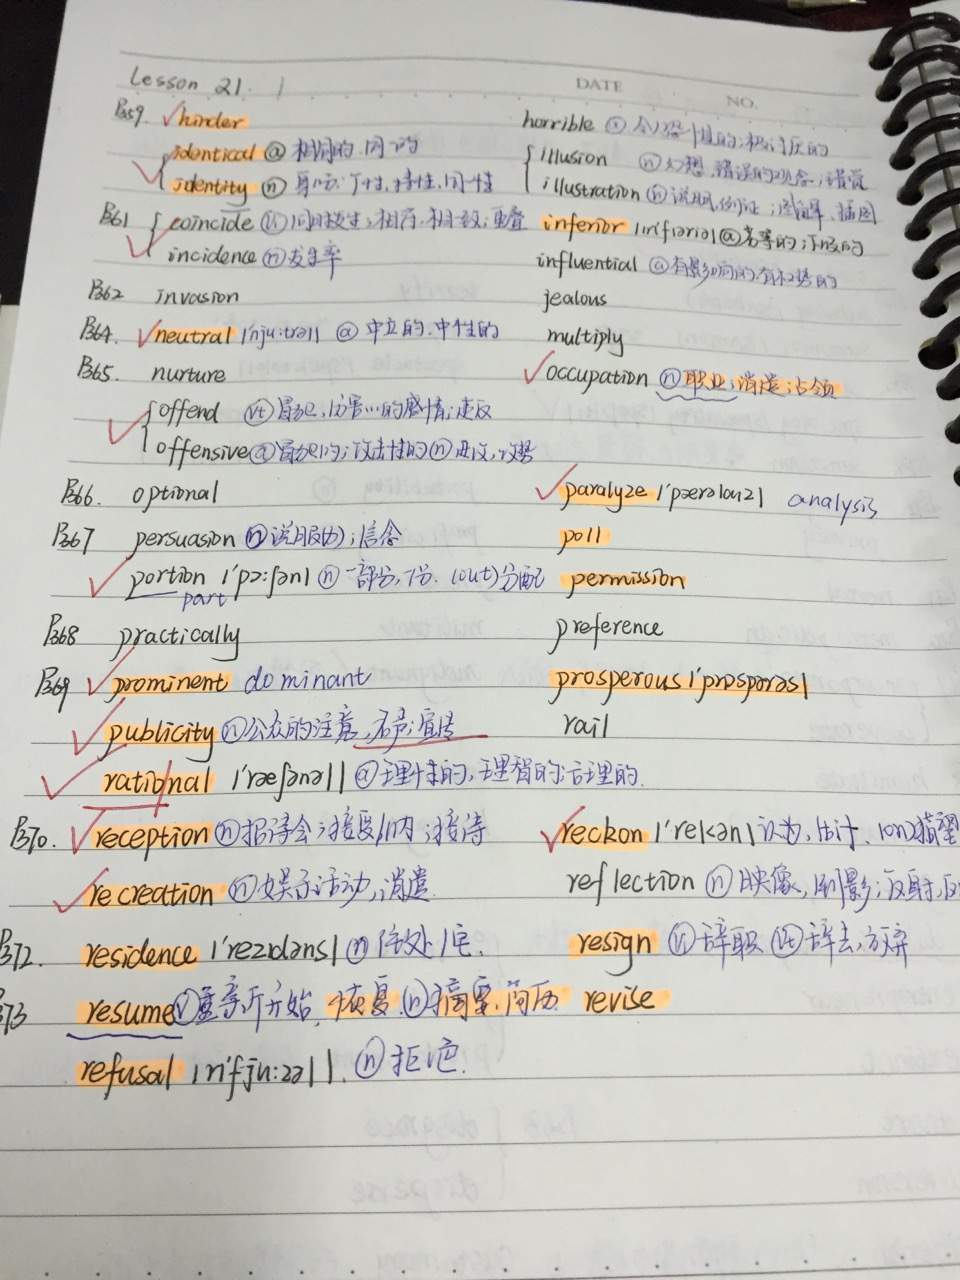 Lesson 21.
DATE
NO.
P359. hinder horrible ⓐ 令人恐怖的;极讨厌的
identical ⓐ 相同的.同一的 illusion ⓝ 幻想,错误的观念,错觉
identity ⓝ 身份;个性,特性,同一性 illustration ⓝ 说明,例证;图解,插图
P361 coincide ⓥi 同时发生;相符,相一致;重叠 inferior |ɪnˈfɪərɪə| ⓐ 劣等的;下级的
incidence ⓝ 发生率 influential ⓐ 有影响的,有权势的
P362 invasion jealous
P364. neutral |ˈnju:trəl| ⓐ 中立的.中性的 multiply
P365. nurture occupation ⓝ 职业;消遣;占领
offend ⓥt 冒犯,伤害…的感情;违反
offensive ⓐ 冒犯的;攻击性的 ⓝ 进攻,攻势
P366. optional paralyze |ˈpærəlaɪz| analysis
P367 persuasion ⓝ 说服(力);信念 poll
portion |ˈpɔ:ʃən| ⓝ 一部分,一份. (out) 分配 permission
part
P368 practically preference
P369 prominent dominant prosperous |ˈprɒspərəs|
publicity ⓝ 公众的注意,名声;宣传 rail
rational |ˈræʃənəl| ⓐ 理性的,理智的;合理的
P370. reception ⓝ 招待会;接受/纳;接待 reckon |ˈrekən| 认为,估计. (on) 指望
recreation ⓝ 娱乐活动,消遣 reflection ⓝ 映像,倒影;反射,反
P372. residence |ˈrezɪdəns| ⓝ 住处/宅 resign ⓥi 辞职 ⓥt 辞去,放弃
P373 resume ⓥ 重新开始,恢复 ⓝ 摘要,简历 revise
refusal |rɪˈfju:zəl|. ⓝ 拒绝.